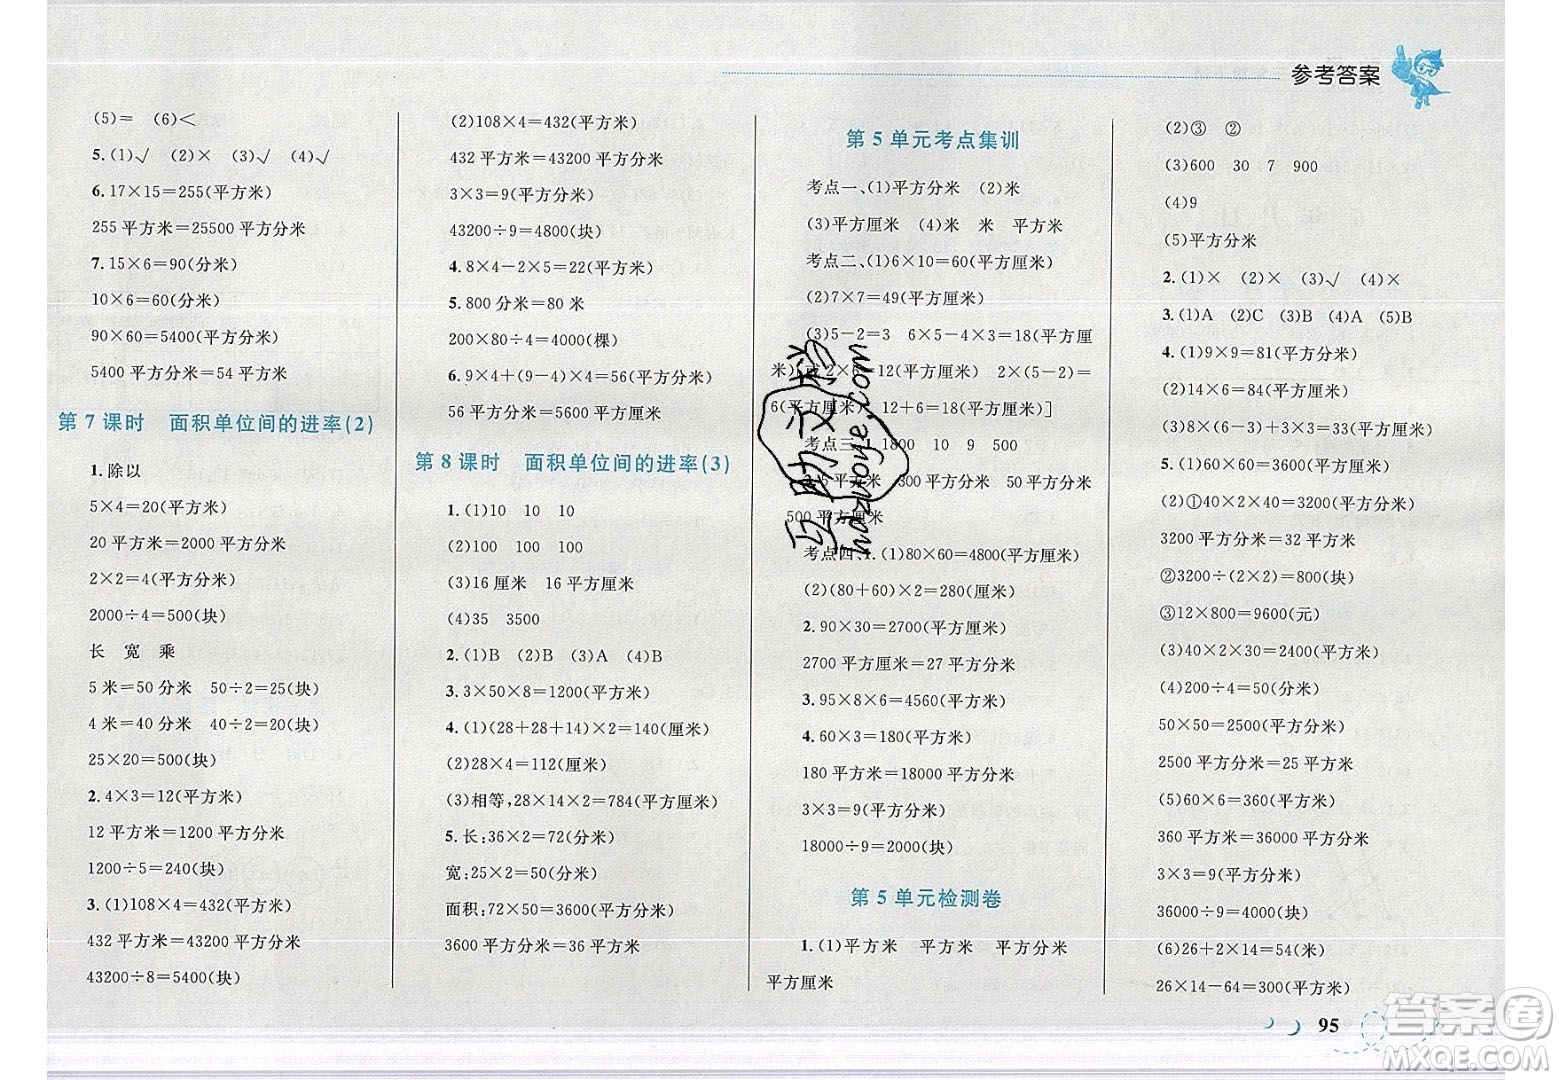 参考答案
(5)= (6)<
5.(1)√ (2)× (3)√ (4)√
6.17×15=255(平方米)
255平方米=25500平方分米
7.15×6=90(分米)
10×6=60(分米)
90×60=5400(平方分米)
5400平方分米=54平方米
第7课时 面积单位间的进率(2)
1.除以
5×4=20(平方米)
20平方米=2000平方分米
2×2=4(平方分米)
2000÷4=500(块)
长 宽 乘
5米=50分米 50÷2=25(块)
4米=40分米 40÷2=20(块)
25×20=500(块)
2.4×3=12(平方米)
12平方米=1200平方分米
1200÷5=240(块)
3.(1)108×4=432(平方米)
432平方米=43200平方分米
43200÷8=5400(块)
(2)108×4=432(平方米)
432平方米=43200平方分米
3×3=9(平方分米)
43200÷9=4800(块)
4.8×4-2×5=22(平方米)
5.800分米=80米
200×80÷4=4000(棵)
6.9×4+(9-4)×4=56(平方米)
56平方米=5600平方分米
第8课时 面积单位间的进率(3)
1.(1)10 10 10
(2)100 100 100
(3)16厘米 16平方厘米
(4)35 3500
2.(1)B (2)B (3)A (4)B
3.3×50×8=1200(平方米)
4.(1)(28+28+14)×2=140(厘米)
(2)28×4=112(厘米)
(3)相等,28×14×2=784(平方厘米)
5.长:36×2=72(分米)
宽:25×2=50(分米)
面积:72×50=3600(平方分米)
3600平方分米=36平方米
第5单元考点集训
考点一、(1)平方分米 (2)米
(3)平方厘米 (4)米 米 平方米
考点二、(1)6×10=60(平方厘米)
(2)7×7=49(平方厘米)
(3)5-2=3 6×5-4×3=18(平方厘
米)[或2×6=12(平方厘米) 2×(5-2)=
6(平方厘米) 12+6=18(平方厘米)]
考点三、1.1800 10 9 500
2.5平方米 300平方分米 50平方分米
500平方厘米
考点四、1.(1)80×60=4800(平方厘米)
(2)(80+60)×2=280(厘米)
2.90×30=2700(平方厘米)
2700平方厘米=27平方分米
3.95×8×6=4560(平方米)
4.60×3=180(平方米)
180平方米=18000平方分米
3×3=9(平方分米)
18000÷9=2000(块)
第5单元检测卷
1.(1)平方米 平方米 平方分米
平方厘米
(2)③ ②
(3)600 30 7 900
(4)9
(5)平方分米
2.(1)× (2)× (3)√ (4)×
3.(1)A (2)C (3)B (4)A (5)B
4.(1)9×9=81(平方厘米)
(2)14×6=84(平方分米)
(3)8×(6-3)+3×3=33(平方米)
5.(1)60×60=3600(平方米)
(2)①40×2×40=3200(平方分米)
3200平方分米=32平方米
②3200÷(2×2)=800(块)
③12×800=9600(元)
(3)40×2×30=2400(平方米)
(4)200÷4=50(分米)
50×50=2500(平方分米)
2500平方分米=25平方米
(5)60×6=360(平方米)
360平方米=36000平方分米
3×3=9(平方分米)
36000÷9=4000(块)
(6)26+2×14=54(米)
26×14-64=300(平方米)
95
互助文档
hdzuoye.com
答案卷
MXQE.COM